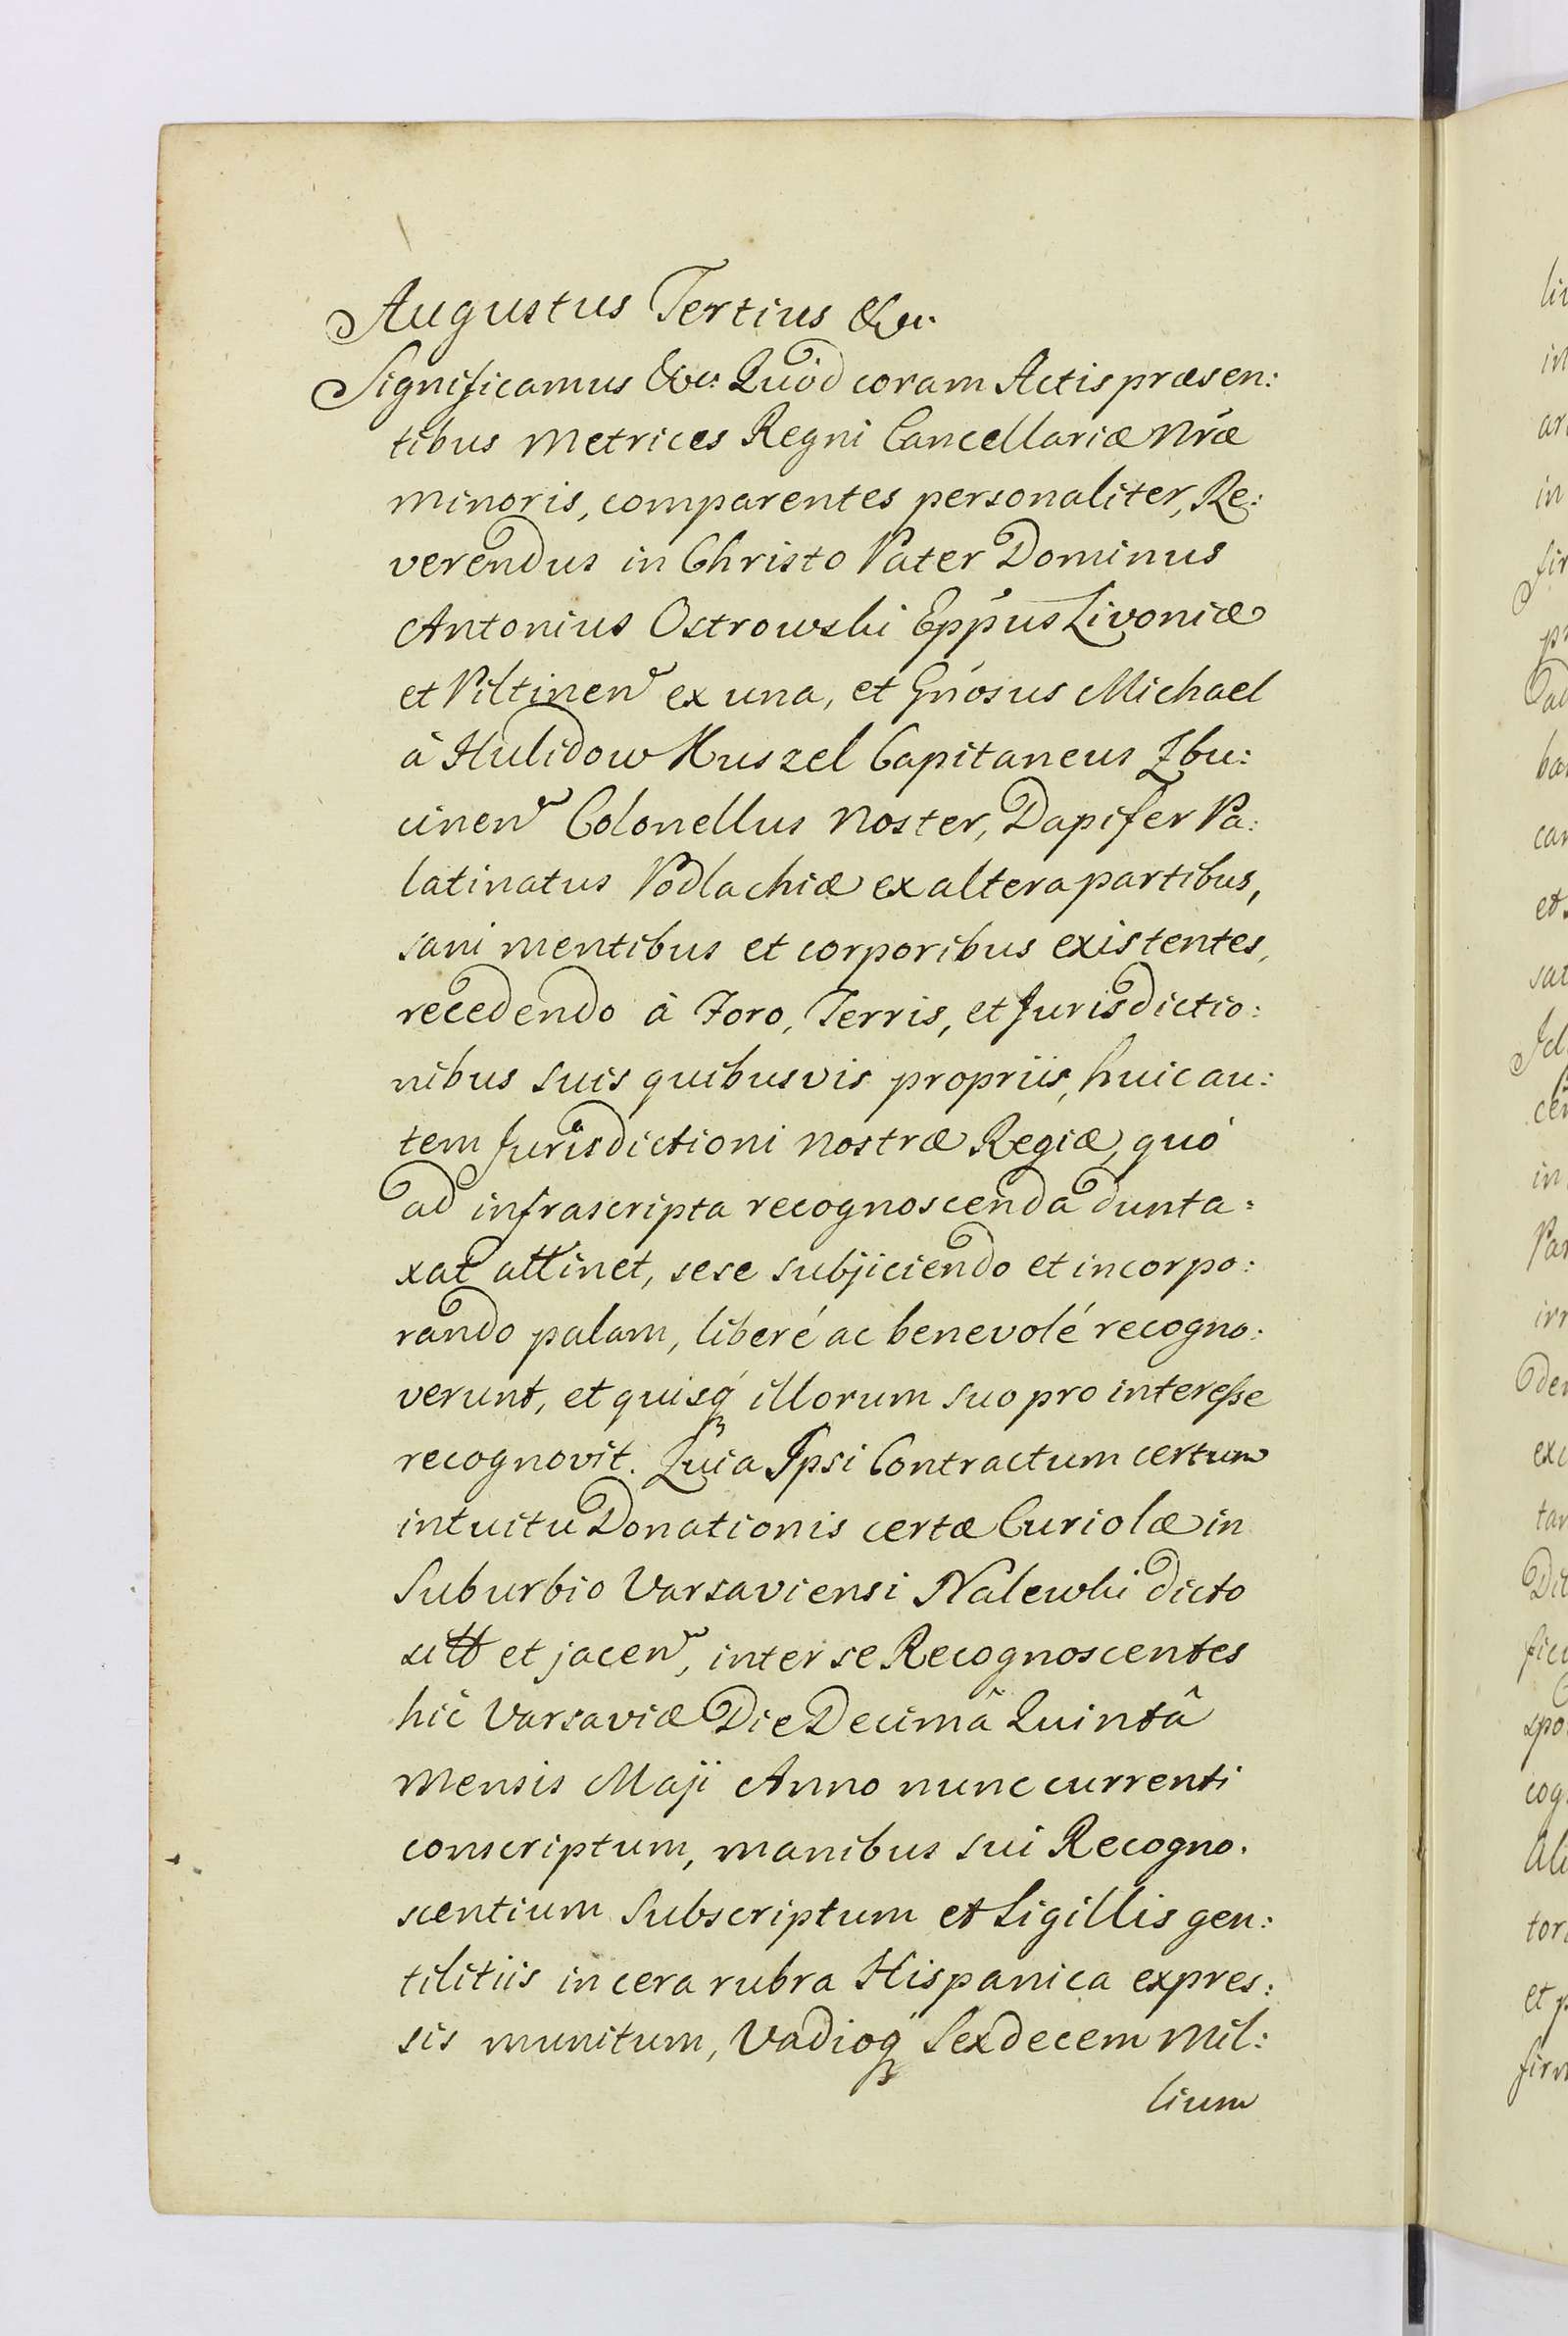 Augustus Tertius &c.
Significamus &c. Quòd coram Actis præsen:
tibus Metrices Regni Cancellariæ Nræ
Minoris, comparentes personaliter, Re:
verendus in Christo Pater Dominus
Antonius Ostrowski Eppus Livoniæ
et Piltinen ex una, et Gnosus Michael
à Hulidow Kuszel Capitaneus Zbu:
cinen Colonellus Noster, Dapifer Pa:
latinatus Podlachiæ ex altera partibus,
sani mentibus et corporibus existentes,
recedendo à Foro, Terris, et Jurisdictio:
nibus suis quibusvis propriis, huic au:
tem Jurisdictioni nostræ Regiæ, quó
ad infrascripta recognoscenda dunta:
xat attinet, sese subjiciendo et incorpo:
rando palam, liberé ac benevolé recogno:
verunt, et quisq illorum suo pro interesse
recognovit. Quia Ipsi Contractum certum
intuitu Donationis certæ Curiolæ in
Suburbio Varsaviensi Nalewki dicto
sitt et jacen, inter se Recognoscentes
hic Varsaviæ Die Decimâ Quintâ
Mensis Maji Anno nunc currenti
conscriptum, manibus sui Recogno.
scentium Subscriptum et Sigillis gen:
tilitiis in cera rubra Hispanica expres:
sis munitum, Vadioq Sexdecem Mil:
lium